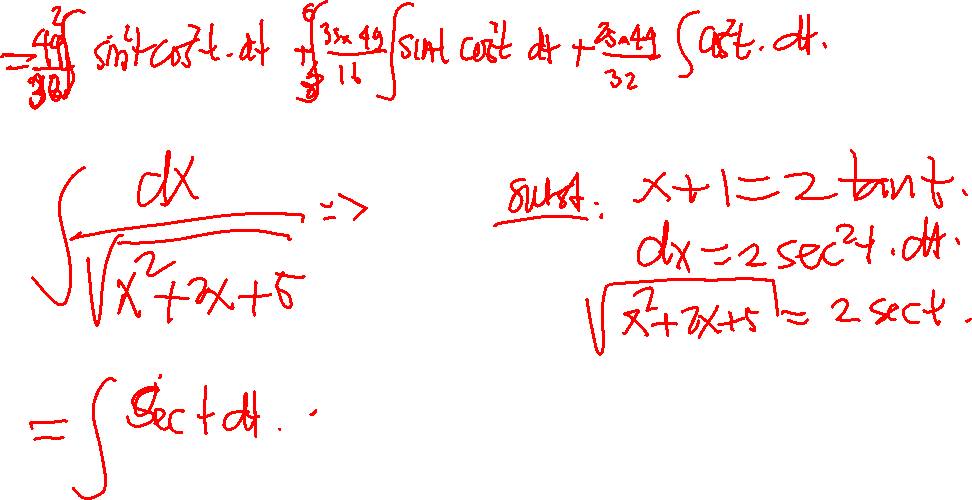 = 49²/32 ∫ sin²t cos²t · dt + 35×49/16 ∫ sint cos²t dt + 25×49/32 ∫ cos²t · dt.
∫ dx/√(x²+2x+5) => subst: x+1 = 2 tan t.
dx = 2 sec²t · dt.
√(x²+2x+5) = 2 sec t.
= ∫ sec t dt.